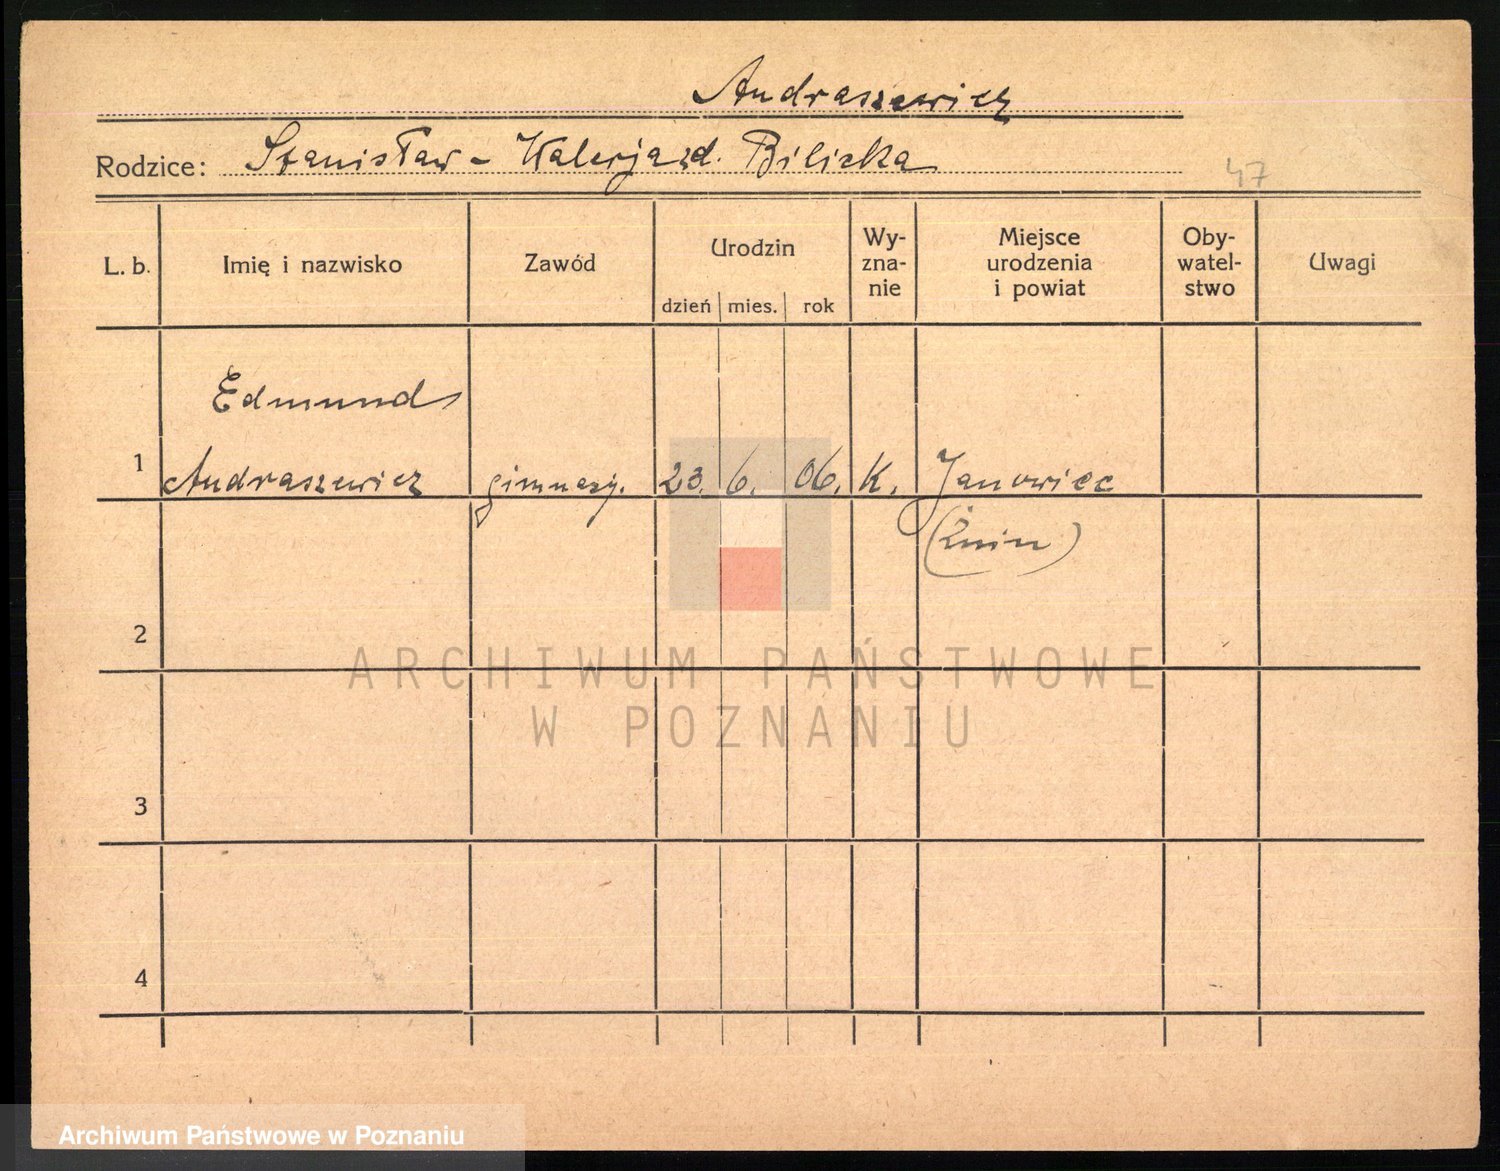 Andraszewicz
Rodzice: Stanisław - Walerja zd. Biliska
47
L. b. Imię i nazwisko Zawód Urodzin dzień mies. rok Wy-zna-nie Miejsce urodzenia i powiat Oby-watel-stwo Uwagi
Edmund
1 Andraszewicz gimnazj. 23. 6. 06. K. Janowiec
(Żnin)
2
ARCHIWUM PAŃSTWOWE
W POZNANIU
3
4
Archiwum Państwowe w Poznaniu